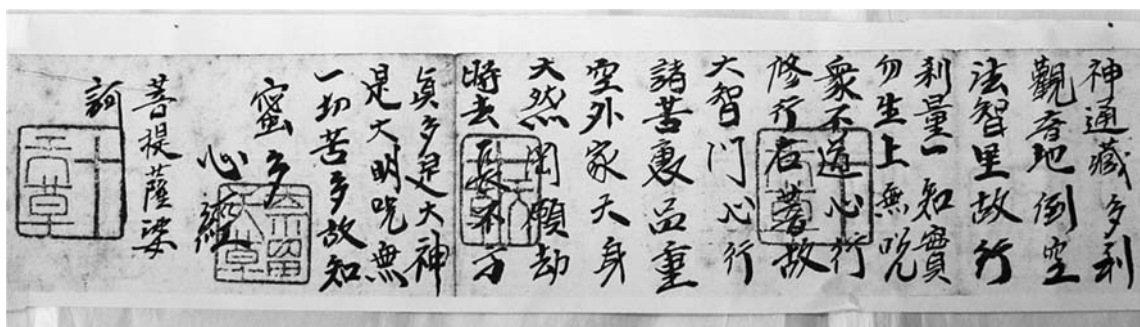 神通藏多利
觀音地倒空
法智里故行
利量一知實
勿生上無咒
衆不道心行
修行石著故
大智門心行
諸苦裏品重
空外家天身
大然閑願劫
時去長不方
真多是大神
是大明咒無
一切苦多故知
蜜多
心經
菩提薩娑
訶